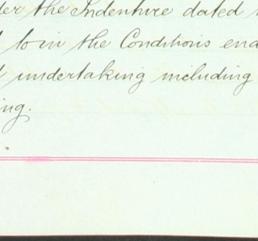 the Indenture dated
to in the Conditions
undertaking including
ing.